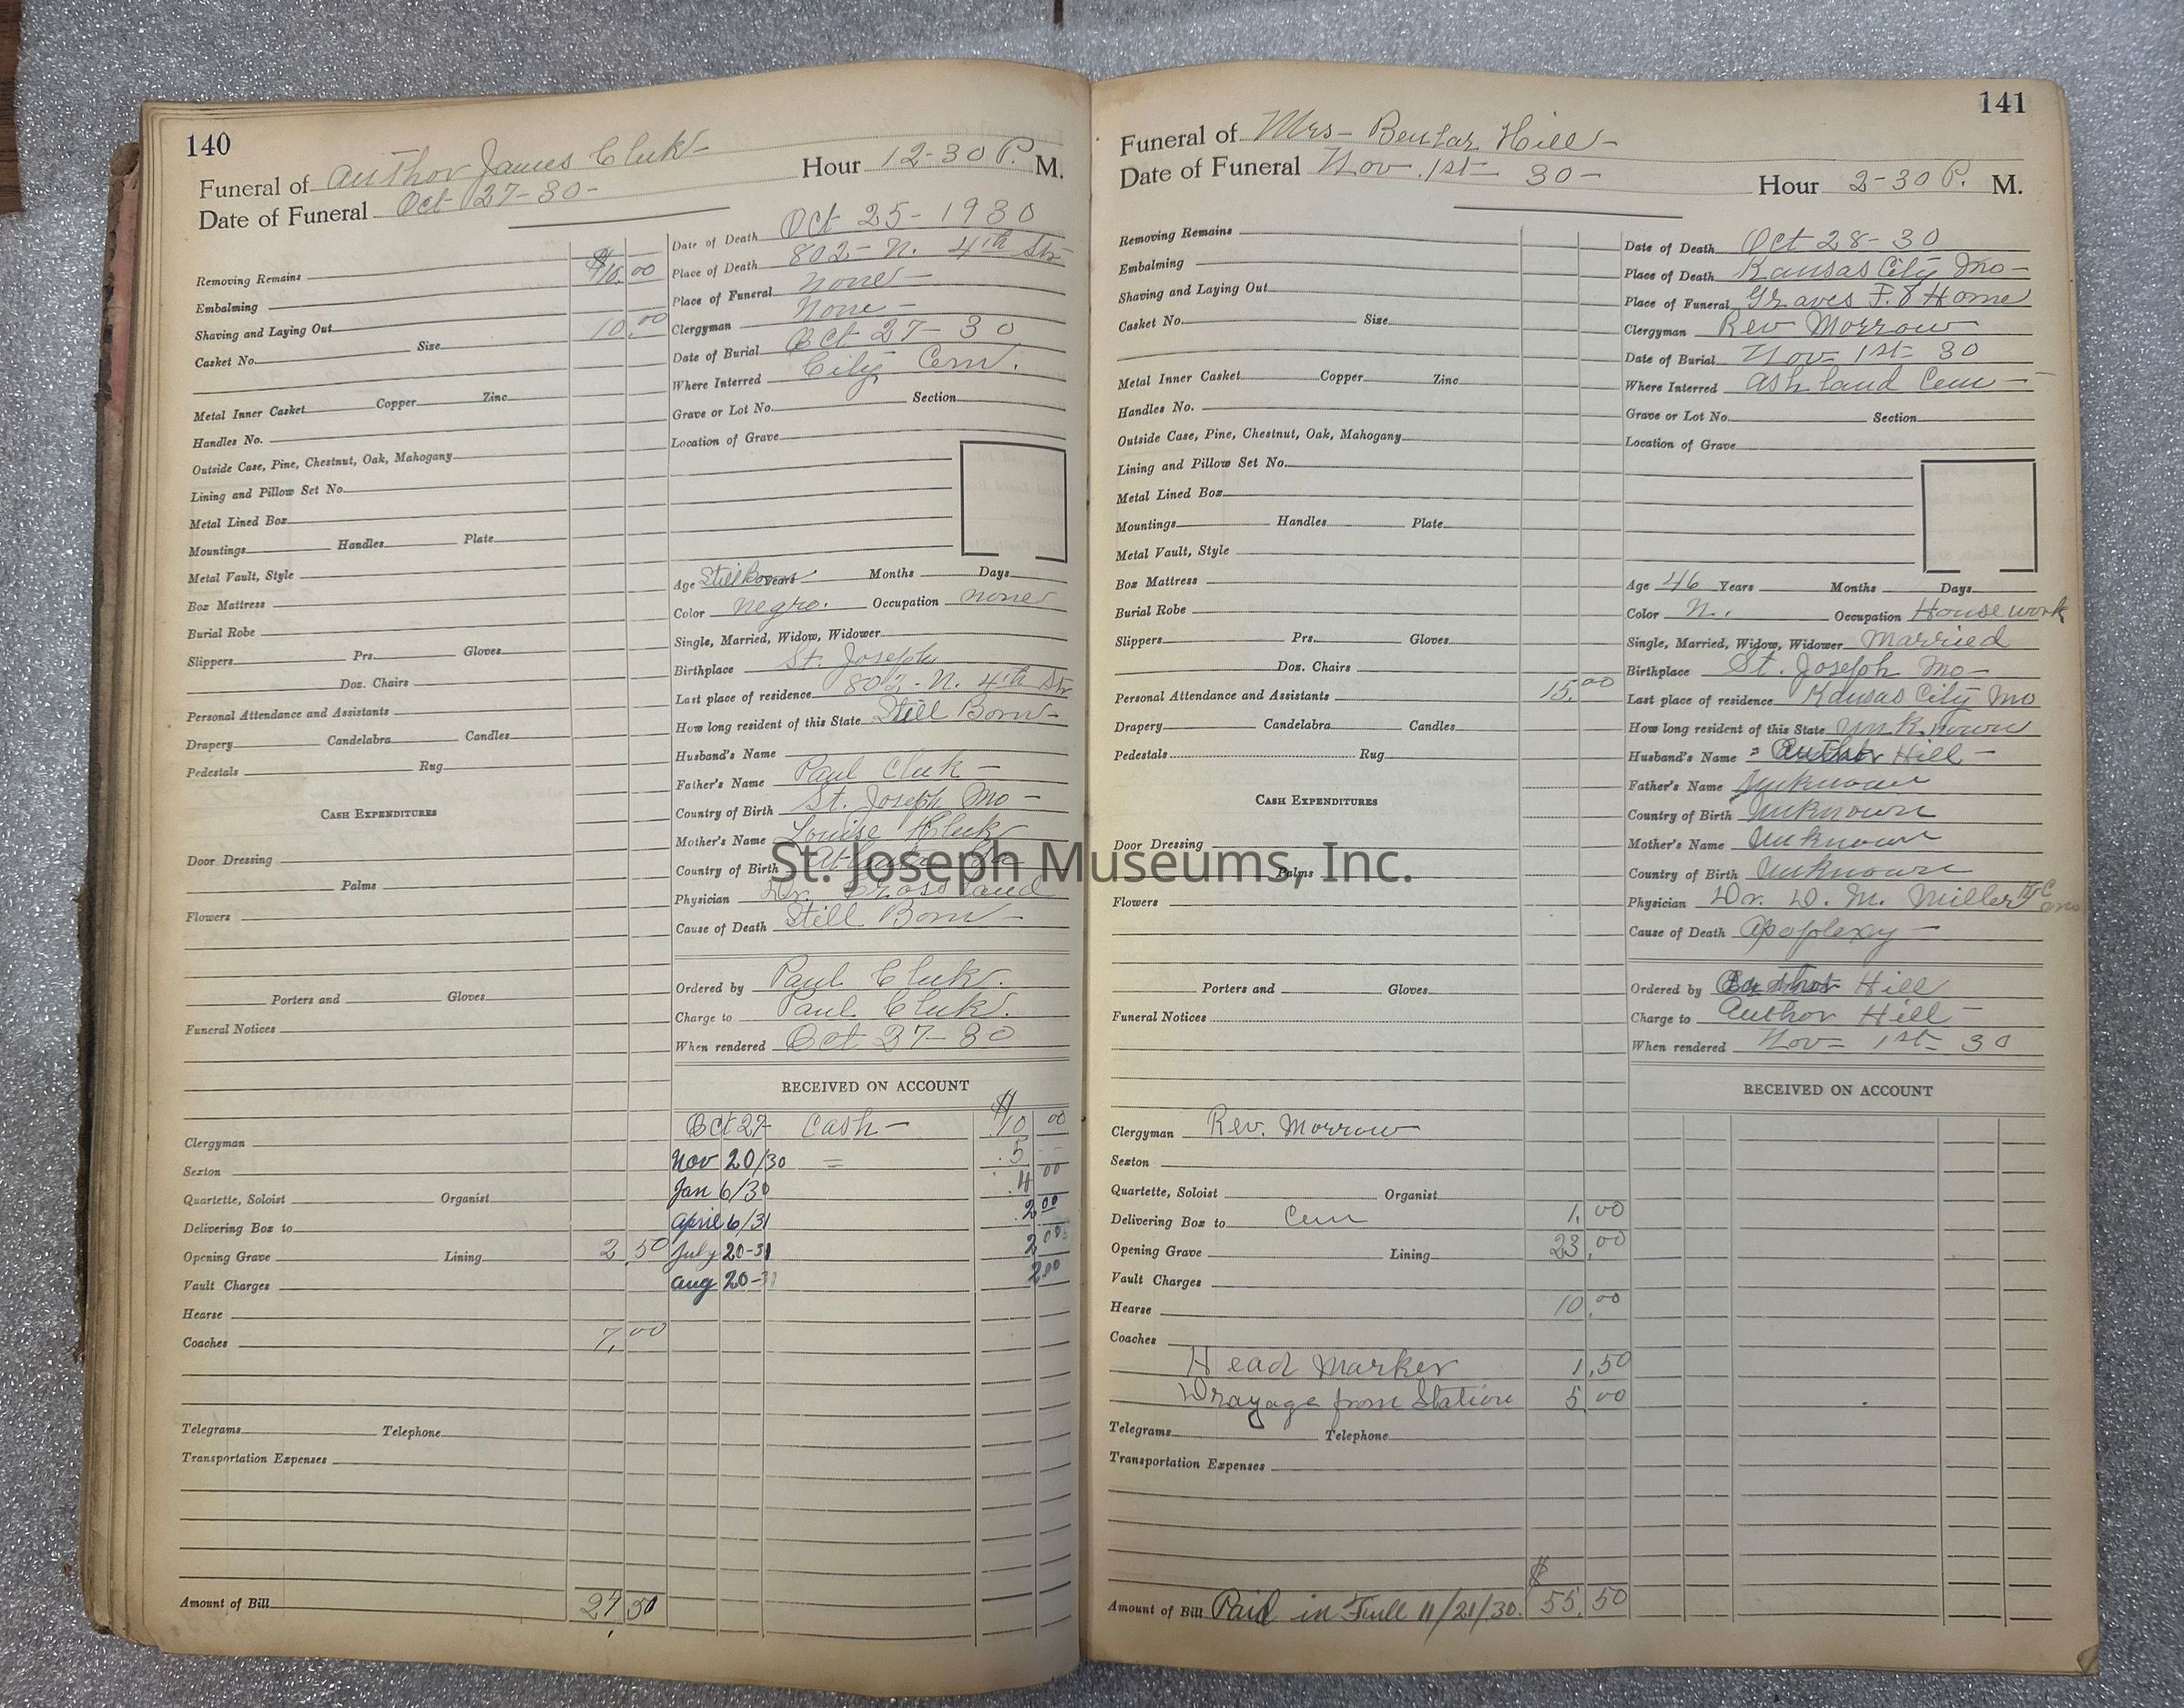 140
Funeral of Author James Cluk
Hour 12-30 P. M.
Date of Funeral Oct 27-30-
Removing Remains $10.00
Embalming
Shaving and Laying Out 10.00
Casket No. Size
Metal Inner Casket Copper Zinc
Handles No.
Outside Case, Pine, Chestnut, Oak, Mahogany
Lining and Pillow Set No.
Metal Lined Box
Mountings Handles Plate
Metal Vault, Style
Box Mattress
Burial Robe
Slippers Prs. Gloves
Doz. Chairs
Personal Attendance and Assistants
Drapery Candelabra Candles
Pedestals Rug
CASH EXPENDITURES
Door Dressing
Palms
Flowers
Porters and Gloves
Funeral Notices
Clergyman
Sexton
Quartette, Soloist Organist
Delivering Box to
Opening Grave Lining 2.50
Vault Charges
Hearse
Coaches 7.00
Telegrams Telephone
Transportation Expenses
Amount of Bill 50
Date of Death Oct 25-1930
Place of Death 802-N. 4th Str
Place of Funeral None-
Clergyman None-
Date of Burial Oct 27-30
Where Interred City Cem.
Grave or Lot No. Section
Location of Grave
Age Still Born Years Months Days
Color negro. Occupation none
Single, Married, Widow, Widower
Birthplace St. Joseph
Last place of residence 802-N. 4th Str
How long resident of this State Still Born-
Husband's Name
Father's Name Paul Cluk-
Country of Birth St. Joseph Mo-
Mother's Name Louise Cluk
Country of Birth
Physician Dr. Crossland
Cause of Death Still Born-
Ordered by Paul Cluk.
Charge to Paul Cluk.
When rendered Oct 27-30
RECEIVED ON ACCOUNT
Oct 27- Cash- $10 00
Nov 20/30 = .5 -
Jan 6/30 .4 00
April 6/31 .2 00
July 20-31 2 00
Aug 20-31 2 00
141
Funeral of Mrs- Beular Hill-
Date of Funeral Nov. 1st- 30-
Hour 2-30 P. M.
Removing Remains
Embalming
Shaving and Laying Out
Casket No. Size
Metal Inner Casket Copper Zinc
Handles No.
Outside Case, Pine, Chestnut, Oak, Mahogany
Lining and Pillow Set No.
Metal Lined Box
Mountings Handles Plate
Metal Vault, Style
Box Mattress
Burial Robe
Slippers Prs. Gloves
Doz. Chairs
Personal Attendance and Assistants 15.00
Drapery Candelabra Candles
Pedestals Rug
CASH EXPENDITURES
Door Dressing
Palms
Flowers
Porters and Gloves
Funeral Notices
Clergyman Rev. Morrow
Sexton
Quartette, Soloist Organist
Delivering Box to Cem 1.00
Opening Grave Lining 23.00
Vault Charges
Hearse 10.00
Coaches
Head Marker 1.50
Drayage from Station 5.00
Telegrams Telephone
Transportation Expenses
$
Amount of Bill Paid in Full 11/21/30. 55.50
Date of Death Oct 28-30
Place of Death Kansas City Mo-
Place of Funeral Graves F. Home
Clergyman Rev Morrow
Date of Burial Nov- 1st- 30
Where Interred Ashland Cem-
Grave or Lot No. Section
Location of Grave
Age 46 Years Months Days
Color N. Occupation Housework
Single, Married, Widow, Widower Married
Birthplace St. Joseph Mo-
Last place of residence Kansas City Mo
How long resident of this State Unknown
Husband's Name Author Hill-
Father's Name Unknown
Country of Birth Unknown
Mother's Name Unknown
Country of Birth Unknown
Physician Dr. D. M. Miller K C Mo
Cause of Death Apoplexy-
Ordered by Author Hill
Charge to Author Hill-
When rendered Nov- 1st- 30
RECEIVED ON ACCOUNT
St. Joseph Museums, Inc.